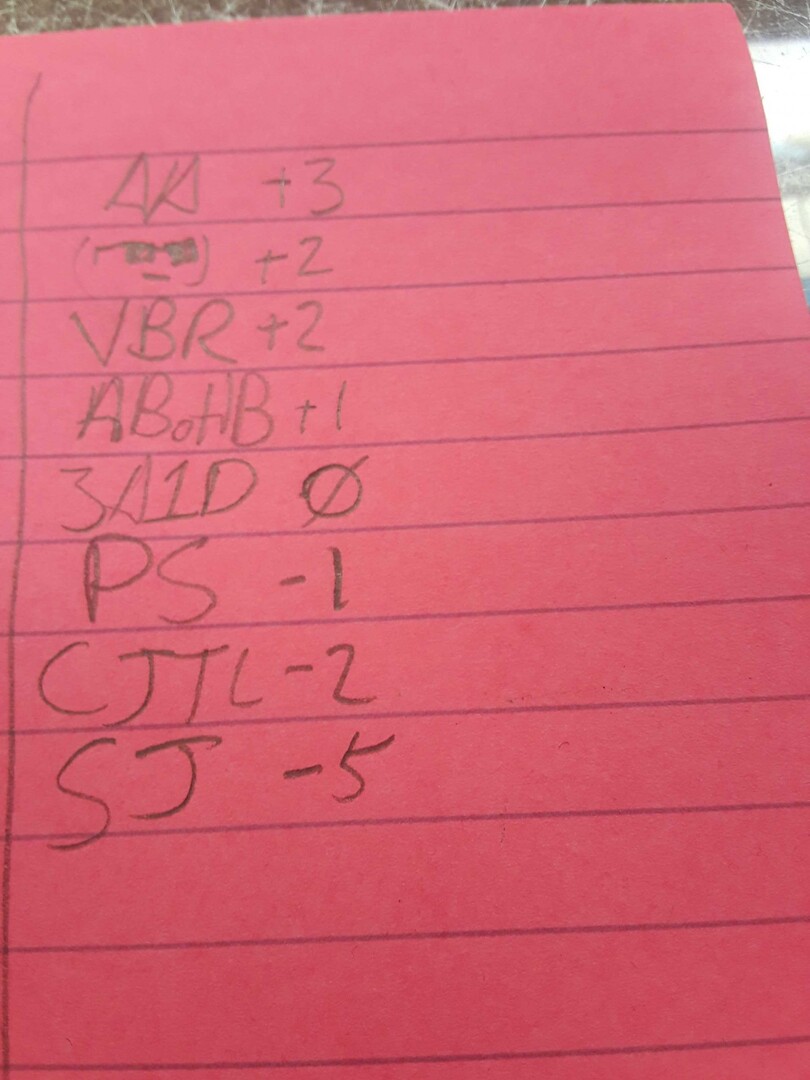 AA +3
+2
VBR +2
ABoHB +1
3A1D Ø
PS -1
CJTL -2
SJ -5